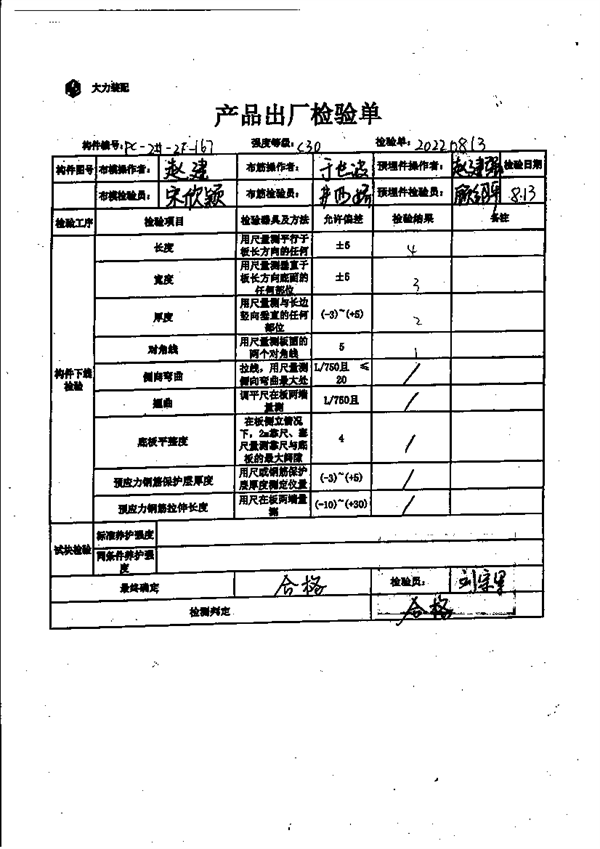 大力装配
产品出厂检验单
构件编号：PC-2#-2F-167 强度等级：C30 检验单：20220813
构件图号 布模操作者： 赵建 布筋操作者： 预埋件操作者： 赵建强 检验日期
布模检验员： 宋欣颖 布筋检验员： 预埋件检验员： 8.13
检验工序 检验项目 检验器具及方法 允许偏差 检验结果 备注
构件下线检验
长度 用尺量测平行于板长方向的任何 ±5 4
宽度 用尺量测垂直于板长方向底面的任何部位 ±5 3
厚度 用尺量测与长边竖向垂直的任何部位 (-3)~(+5) 2
对角线 用尺量测板面的两个对角线 5 1
侧向弯曲 拉线，用尺量测侧向弯曲最大处 L/750且 ≤20 /
翘曲 调平尺在板两端量测 L/750且 /
底板平整度 在板侧立情况下，2m靠尺、塞尺量测靠尺与底板的最大间隙 4 /
预应力钢筋保护层厚度 用尺或钢筋保护层厚度测定仪量 (-3)~(+5) /
预应力钢筋拉伸长度 用尺在板两端量测 (-10)~(+30) /
试块检验 标准养护强度
同条件养护强度
最终确定 合格 检验员：
检测判定 合格